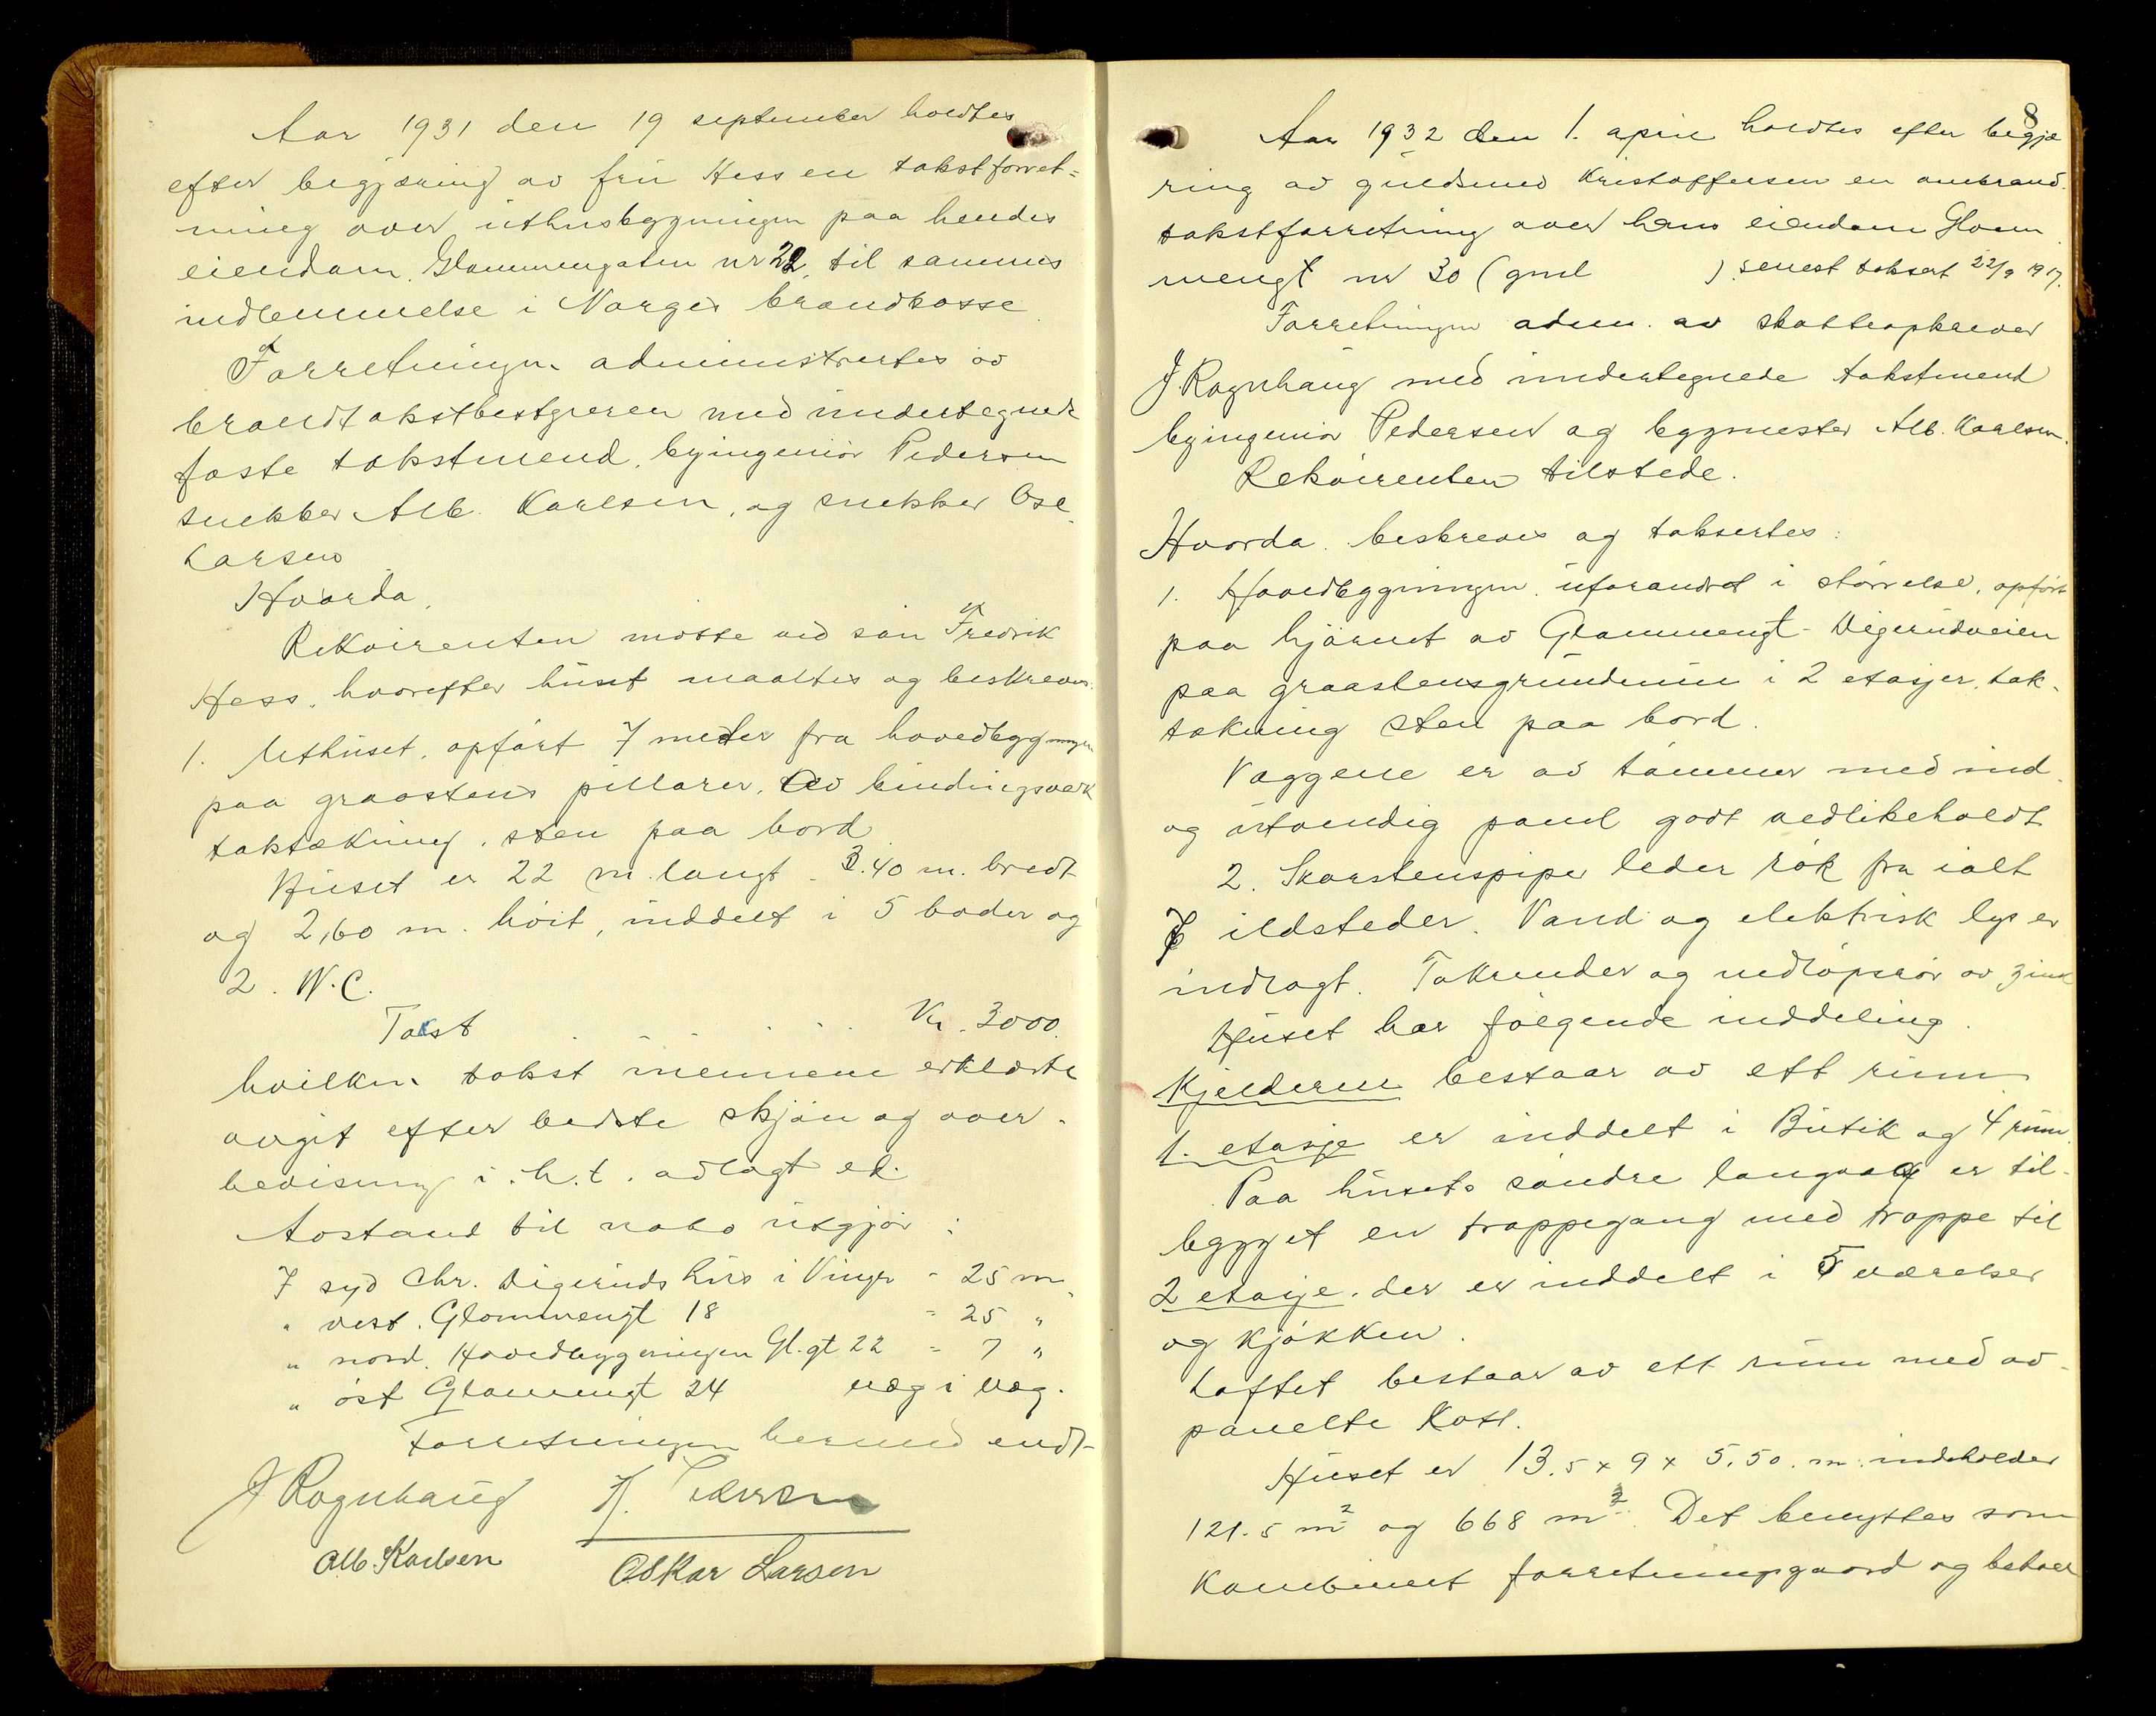 Aar 1931 den 19 september holdtes
efter begjæring av frü Hess en takstforret=
ning over üthusbygningen paa hendes
eiendom Glommengaten nr 22, til sammes
indlemmelse i Norges brandkasse
Forretningen administrertes av
brandtakstbestyreren med ündertegnede
faste takstmend, byingeniör Pedersen
snekker Alb. Karlsen, og snekker Osc.
Larsen
Hvorda,
Rekvirenten mötte ved sön Fredrik
Hess, hvorefter hüset maaltes og beskreves.
1. Uthüset, opfört 7 meter fra hovedbygningen
paa graastens pillarer, Av bindingsverk
taktækning, sten paa bord
Hüset er 22 m. langt - 3.40 m. bredt
og 2,60 m. höit, inddelt i 5 boder og
2. W.C.
Takst Kr. 3000.
hvilken takst mennene erklærte
avgit efter bedste skjön og over-
bevisning i. h. t. avlagt ed.
Avstand til nabo ütgjör :
I syd Chr. Digerüds hüs i Vinger - 25 m.
" vest. Glommengt 18 - 25 "
" nord. Hovedbygningen Gl.gt 22 - 7 "
" öst Glommengt 24 væg i væg.
Forretningen hermed endt-
J Rognhaüg K. Pedersen
Alb. Karlsen Oskar Larsen
8
Aar 1932 den 1. april holdtes efter begjæ
ring av güldsmed Kristoffersen en ombrand.
takstforretning over hans eiendom Glom
mengt nr 30 (gml ) senest taksert 22/9 1917.
Forretningen adm. av skatteopkrever
J. Rognhaüg med ündertegnede takstmend
byingeniör Pedersen og bygmester Alb. Karlsen.
Rekvirenten tilstede.
Hvorda beskreves og taksertes:
1. Hovedbygningen üforandret i störrelse, opfört
paa hjörnet av Glommengt - Digerüdveien
paa graastensgründmür i 2 etasjer, tak-
tekning sten paa bord.
Væggene er av tömmer med ind
og ütvendig panel godt vedlikeholdt
2. Skorstenspipe leder rök fra ialt
7 ildsteder. Vand og elektrisk lys er
indlagt. Takrender og nedlöpsrör av zink
Hüset har fölgende inddeling.
Kjelderen bestaar av ett rüm
1. etasje er inddelt i Bütik og 4 rüm.
Paa hüsets söndre langvæg er til-
bygget en trappegang med trappe til
2 etasje. der er inddelt i 5 værelser
og kjökken.
Loftet bestaar av ett rüm med av-
panelte Kott.
Hüset er 13.5 x 9 x 5.50. m. indeholder
121.5 m² og 668 m³. Det benyttes som
Kombinert forretningsgaard og beboel